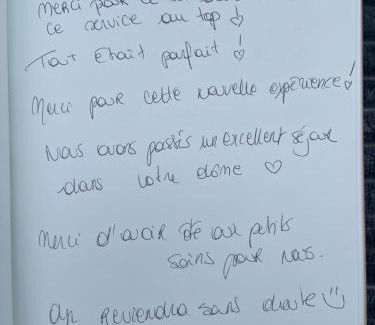 Merci pour ce
ce service au top
Tout Etait parfait !
Merci pour cette nouvelle expérience !
Nous avons passés un excellent séjour
dans votre dôme ♡
Merci d'avoir été aux petits
soins pour nous.
On Reviendra sans doute ☺